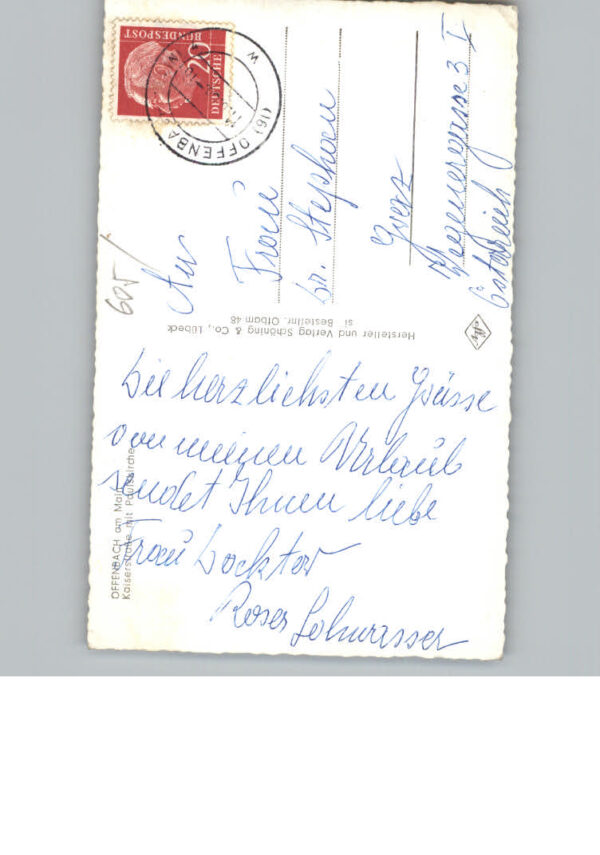 DEUTSCHE
BUNDESPOST
20
(16) OFFENBA
An
Frau
Dr. Stephoeu
Graz
Wegenergasse 3 I
Österreich
605
Hersteller und Verlag Schöning & Co., Lübeck
si Bestellnr. Ofbam 48
Die herzlichsten Grüsse
von meinen Urlaub
sendet Ihnen liebe
Frau Docktor
OFFENBACH am Main
Kaiserstraße mit Paulskirche